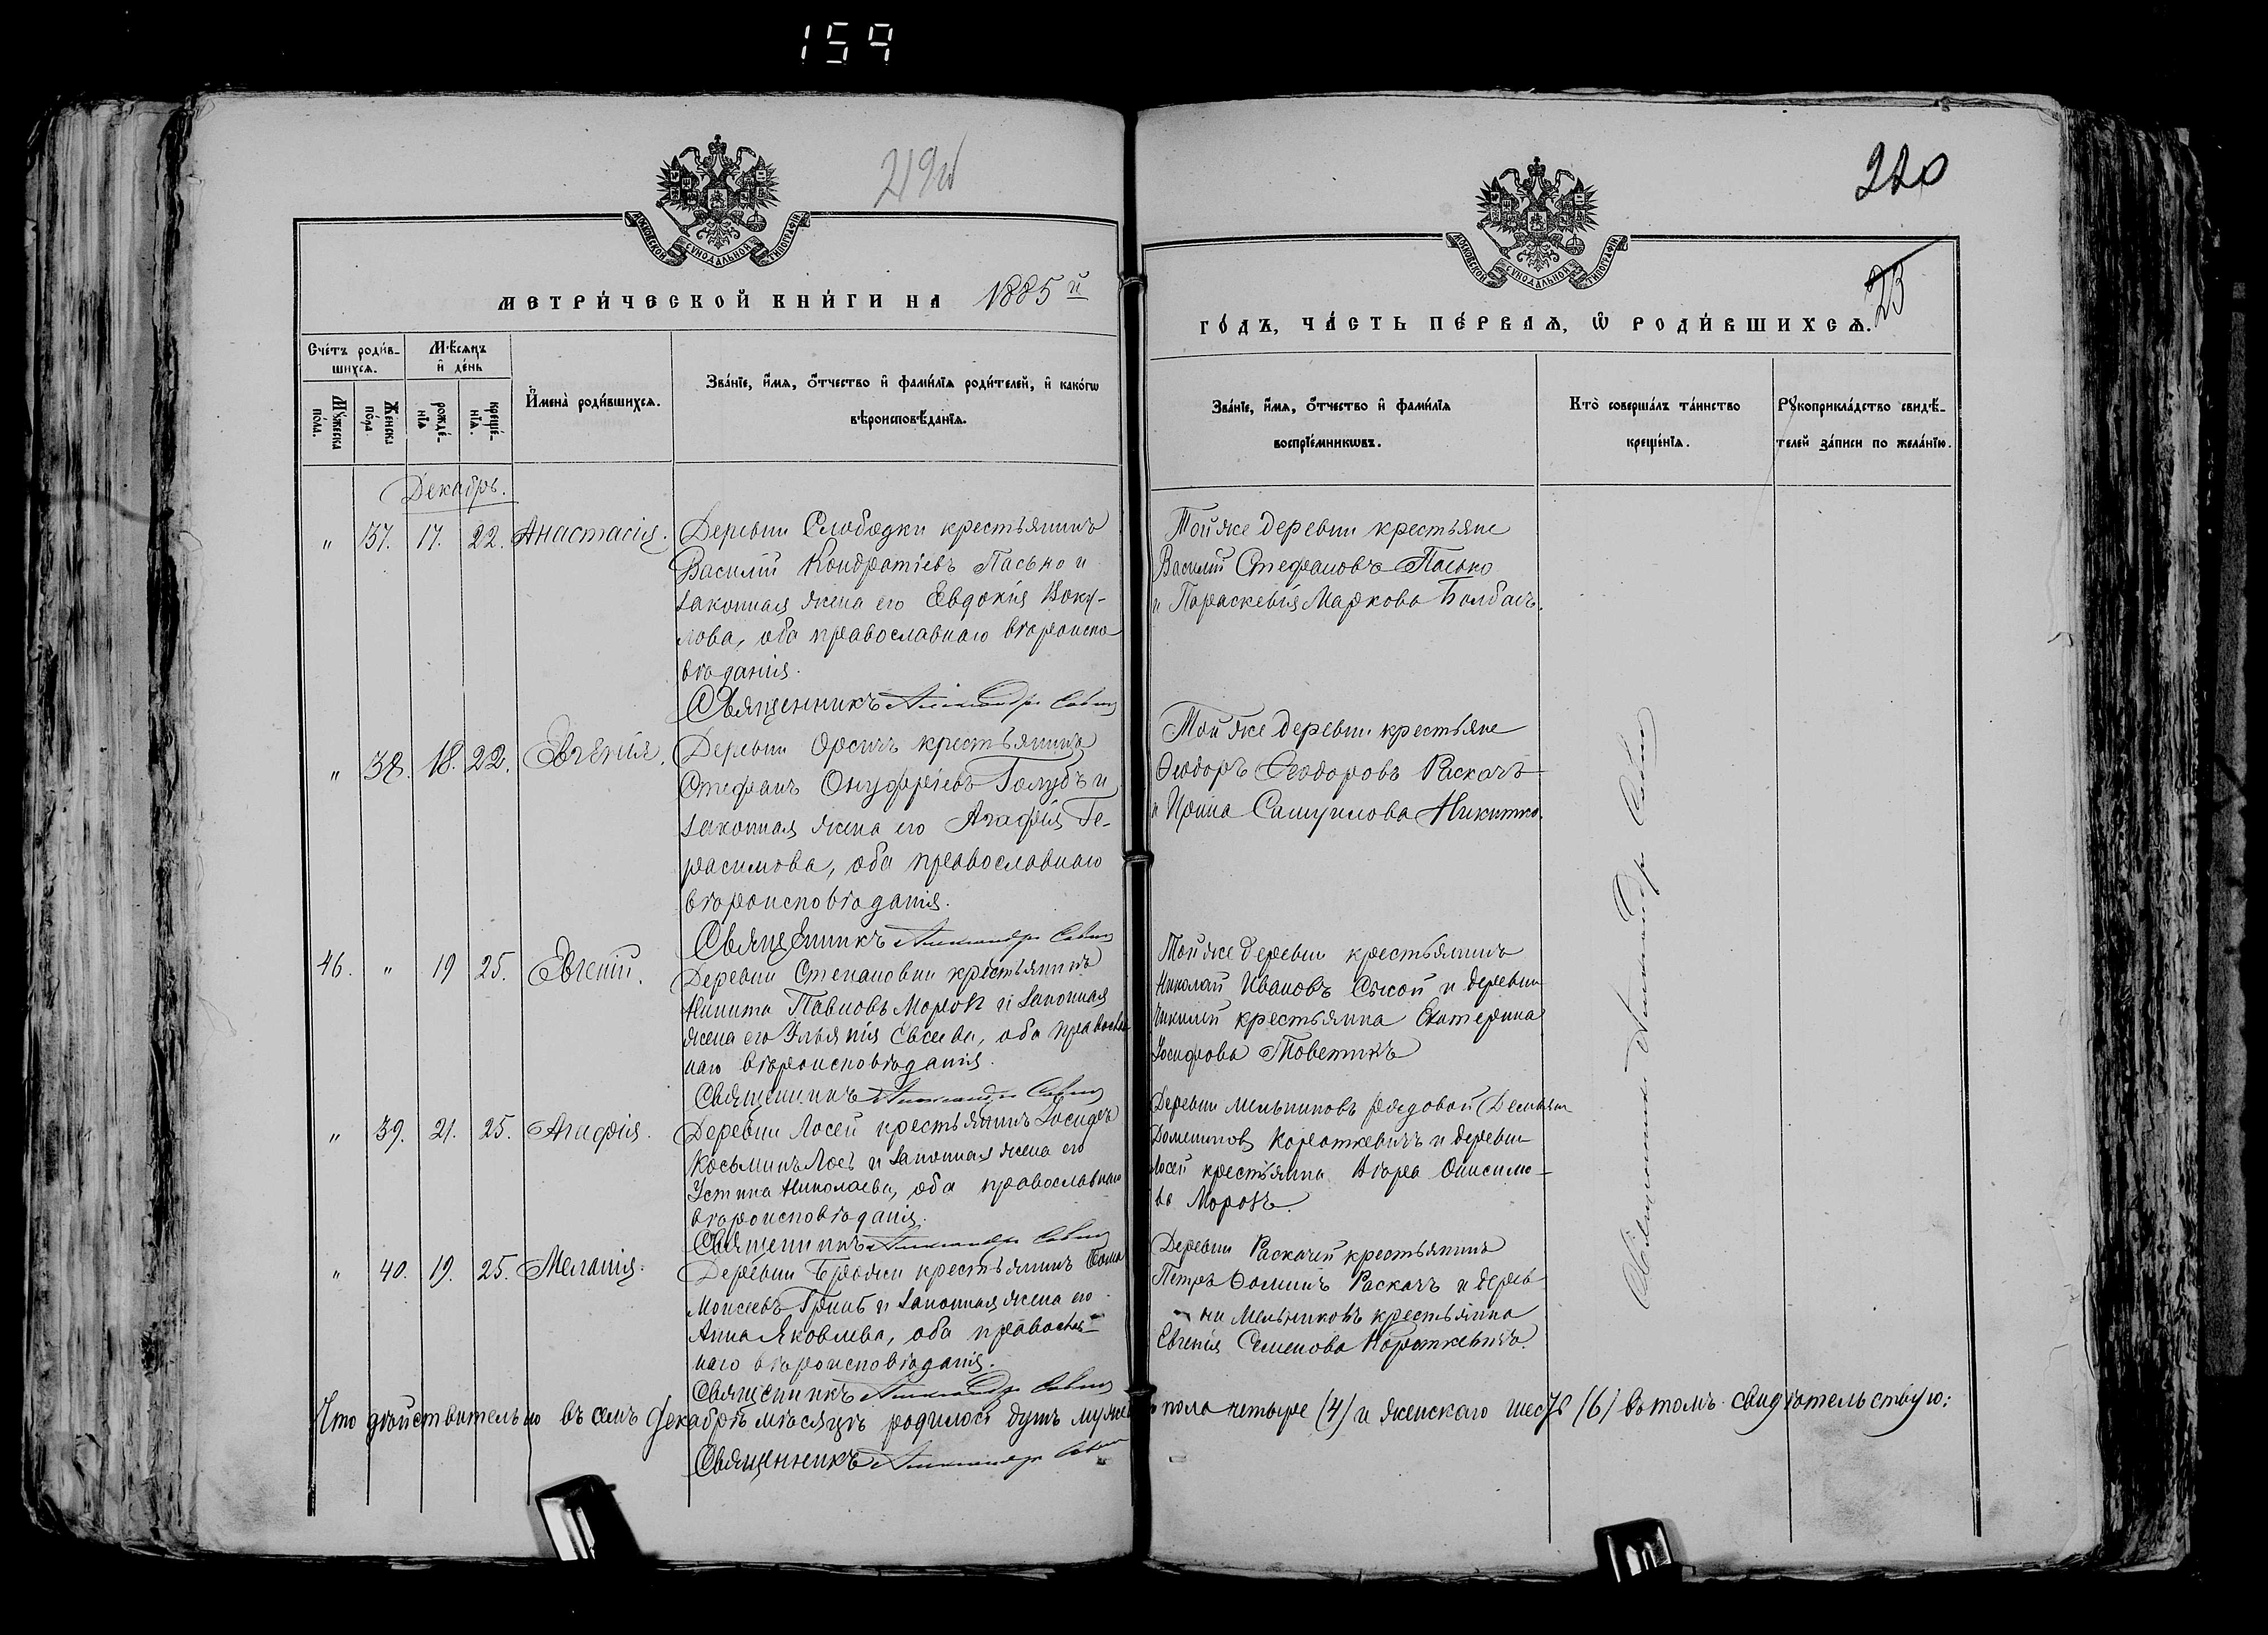 159
219 об
220
МОСКОВСКОЙ СѴНОДАЛЬНОЙ ТИПОГРАФІИ
МОСКОВСКОЙ СѴНОДАЛЬНОЙ ТИПОГРАФІИ
МЕТРИ́ЧЕСКОЙ КНИ́ГИ НА 1885 й
ГО́ДЪ, ЧА́СТЬ ПЕ́РВАѦ, Ѡ҆ РОДИ́ВШИХСѦ.
23
Сче́тъ роди́в-
шихсѧ.
Мѣ́сѧцъ
и҆ де́нь
Мꙋ́жеска
по́ла.
Же́нска
по́ла
рожде́-
нїѧ
креще́-
нїѧ.
И҆мена̀ роди́вшихсѧ.
Зва́нїе, и҆́мѧ, ѻ҆́тчество и҆ фами́лїѧ роди́телей, и҆ како́гѡ
вѣроисповѣ́данїѧ.
Зва́нїе, и҆́мѧ, ѻ҆́тчество и҆ фами́лїѧ
воспрїе́мникѡвъ.
Кто̀ соверша́лъ та́инство
креще́нїѧ.
Рꙋкоприкла́дство свидѣ́-
телей за́писи по жела́нїю.
Декабрь.
" 37. 17. 22. Анастасія. Деревни Слободки крестьянинъ
Василій Кондратіевъ Пасько и
законная жена его Евдокія Воку-
лова, оба православнаго вѣроиспо
вѣданія.
Священникъ Александръ
Той же деревни крестьяне
Василій Стефановъ Пасько
и Параскевія Маркова Болбасъ.
" 38. 18. 22. Евгенія. Деревни Оросичъ крестьянинъ
Стефанъ Онуфріевъ Голубъ и
законная жена его Агафія Ге-
расимова, оба православнаго
вѣроисповѣданія.
Священникъ Александръ
Той же деревни крестьяне
Ѳеодоръ Ѳеодоровъ Раскачъ
и Ирина Самуилова Никитко.
46. " 19 25. Евгеній. Деревни Степановки крестьянинъ
Никита Павловъ Морозъ и законная
жена его Ульянія Евсеева, оба православ
наго вѣроисповѣданія.
Священникъ Александръ
Той же деревни крестьянинъ
Николай Ивановъ Сысой и деревни
крестьянка Екатерина
Іосифова
" 39. 21. 25. Агафія. Деревни Лосей крестьянинъ Іосифъ
Косьминъ Лось и законная жена его
Устина Николаева, оба православнаго
вѣроисповѣданія.
Священникъ Александръ
Деревни Мельниковъ рядовой Демьянъ
Короткевичъ и деревни
Лосей крестьянка Вѣра Онисимо-
ва Морозъ.
" 40. 19. 25. Меланія. Деревни крестьянинъ Ѳома
Моисеевъ Грибъ и законная жена его
Анна Яковлева, оба православ-
наго вѣроисповѣданія.
Священникъ Александръ
Деревни Раскачей крестьянинъ
Петръ Ѳоминъ Раскачъ и дерев-
ни Мельниковъ крестьянка
Евгенія Семенова Короткевичъ.
Священникъ Александръ
Что дѣйствительно въ семъ Декабрѣ мѣсяцѣ родилось душъ мужеска пола четыре (4) и женскаго шесть (6) въ томъ свидѣтельствую:
Священникъ Александръ